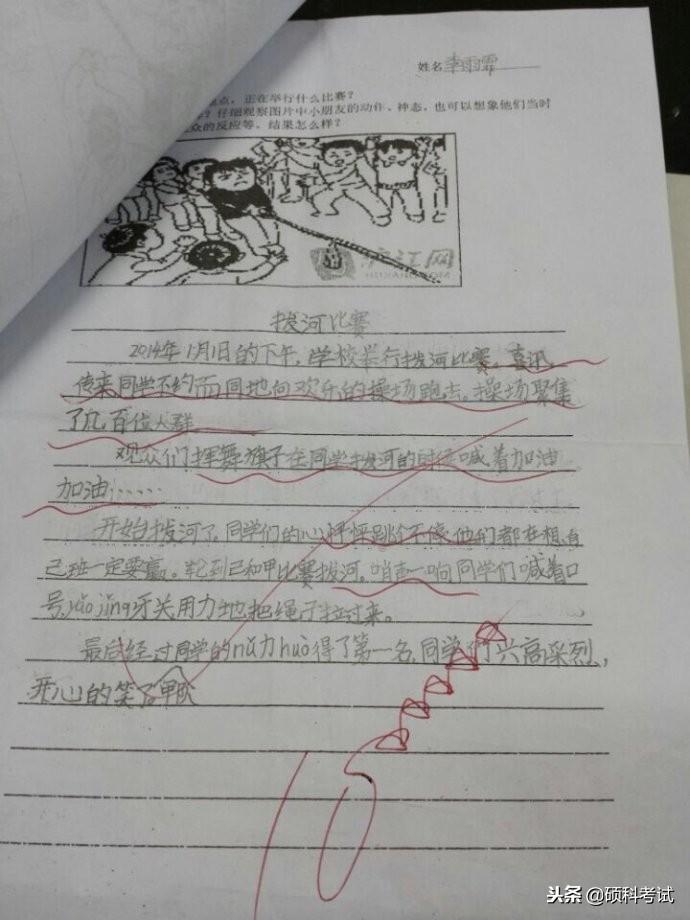 姓名 李雨霏
点，正在举行什么比赛？
？仔细观察图片中小朋友的动作、神态，也可以想象他们当时
众的反应等。结果怎么样？
沪江网
HUJIANG.COM
拨河比赛
2014年1月1日的下午，学校举行拨河比赛。喜讯
传来同学不约而同地向欢乐的操场跑去。操场聚集
了几百位人群
观众们挥舞旗子在同学拨河的时候喊着加油
加油……
开始拨河了，同学们的心怦怦跳个不停，他们都在想，自
己班一定要赢。轮到己和甲比赛拨河。哨声一响同学们喊着口
号，yǎo jǐng牙关用力地把绳子拉过来。
最后经过同学的nǔ力huò得了第一名，同学们兴高采烈，
开心的笑了甲队
10
头条 @硕科考试